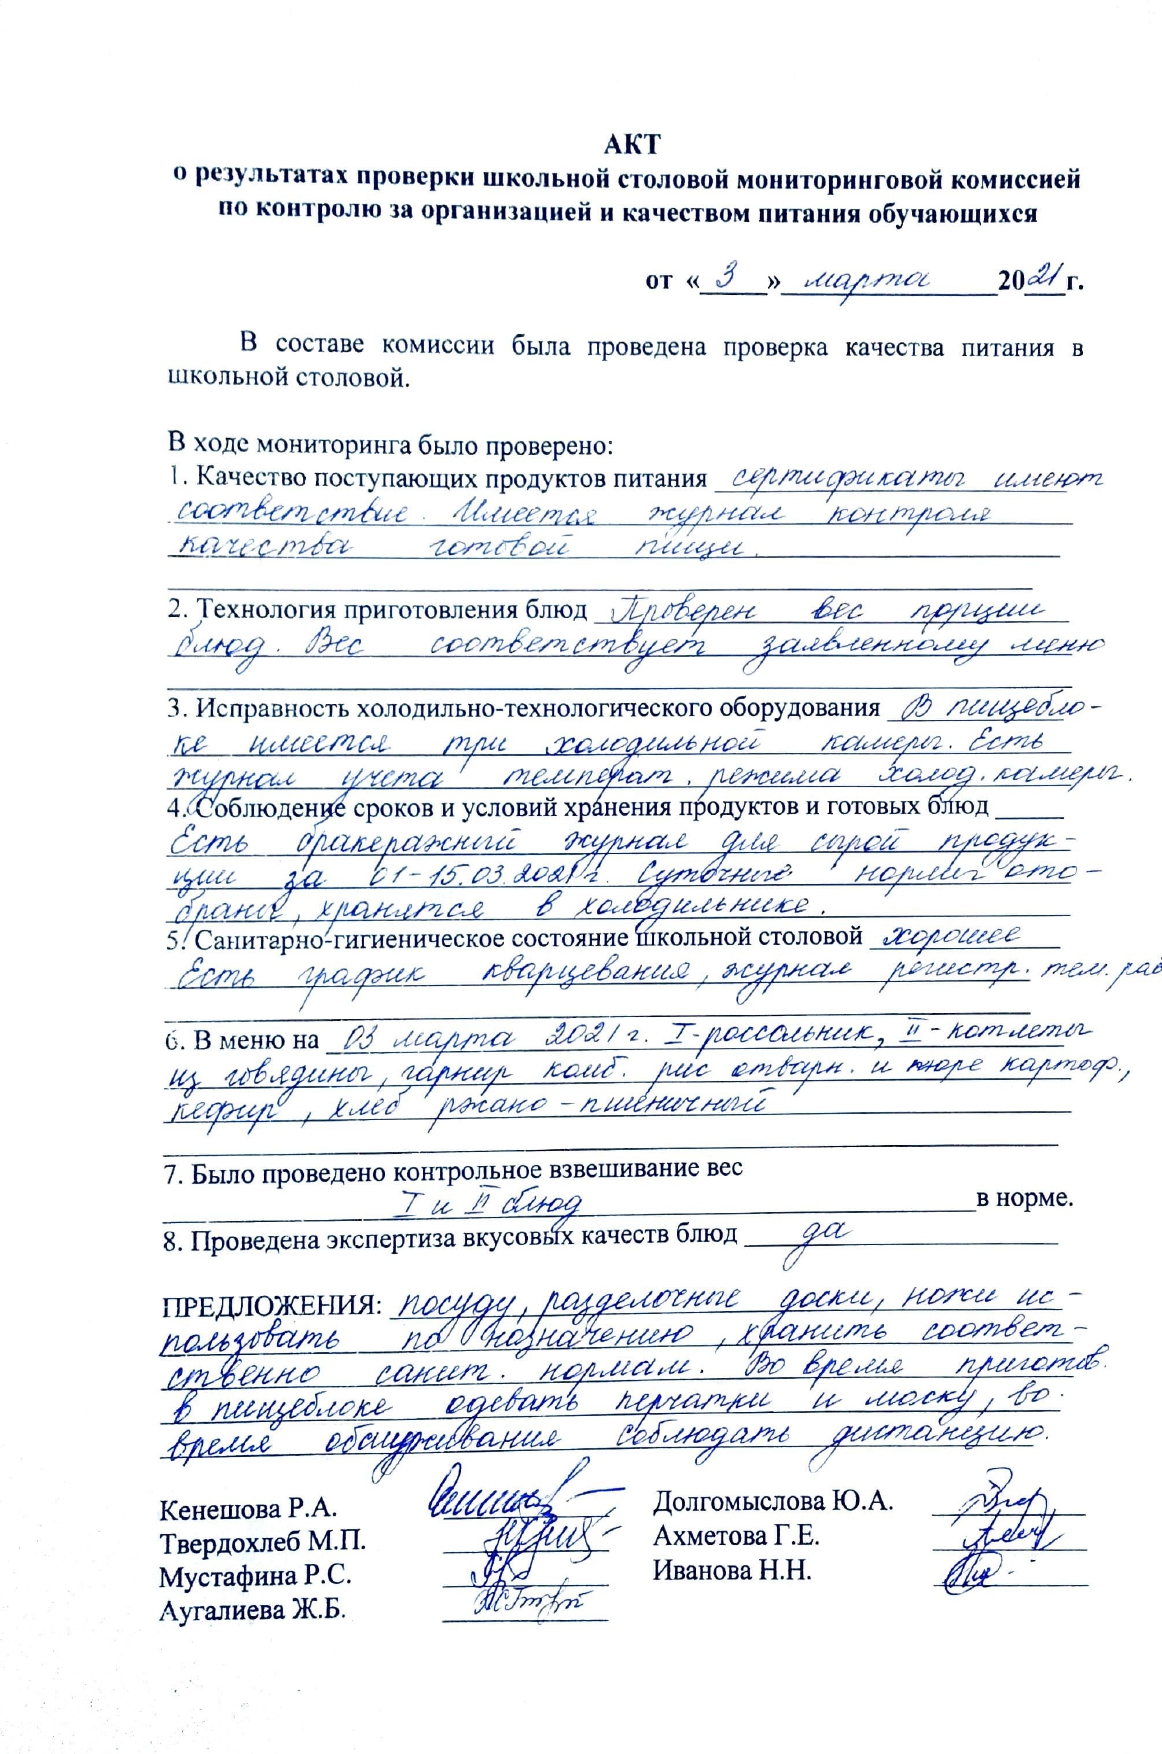 АКТ
о результатах проверки школьной столовой мониторинговой комиссией
по контролю за организацией и качеством питания обучающихся
от «3» марта 2021 г.
В составе комиссии была проведена проверка качества питания в
школьной столовой.
В ходе мониторинга было проверено:
1. Качество поступающих продуктов питания сертификаты имеют
соответствие. Имеется журнал контроля
качества готовой пищи.
2. Технология приготовления блюд Проверен вес порции
блюд. Вес соответствует заявленному меню
3. Исправность холодильно-технологического оборудования В пищебло-
ке имеется три холодильной камеры. Есть
журнал учета температ. режима холод. камеры.
4. Соблюдение сроков и условий хранения продуктов и готовых блюд
Есть бракеражный журнал для сырой продук-
ции за 01-15.03.2021 г. Суточные нормы ото-
браны, хранятся в холодильнике.
5. Санитарно-гигиеническое состояние школьной столовой хорошее
Есть график кварцевания, журнал регистр. тем. раб
6. В меню на 03 марта 2021 г. I-россольник, II-котлеты
из говядины, гарнир комб. рис отварн. и пюре картоф.,
кефир, хлеб ржано-пшеничный
7. Было проведено контрольное взвешивание вес
I и II блюд в норме.
8. Проведена экспертиза вкусовых качеств блюд да
ПРЕДЛОЖЕНИЯ: посуду, разделочные доски, ножи ис-
пользовать по назначению, хранить соответ-
ственно санит. нормам. Во время приготов.
в пищеблоке одевать перчатки и маску, во
время обслуживания соблюдать дистанцию.
Кенешова Р.А. Долгомыслова Ю.А.
Твердохлеб М.П. Ахметова Г.Е.
Мустафина Р.С. Иванова Н.Н.
Аугалиева Ж.Б.